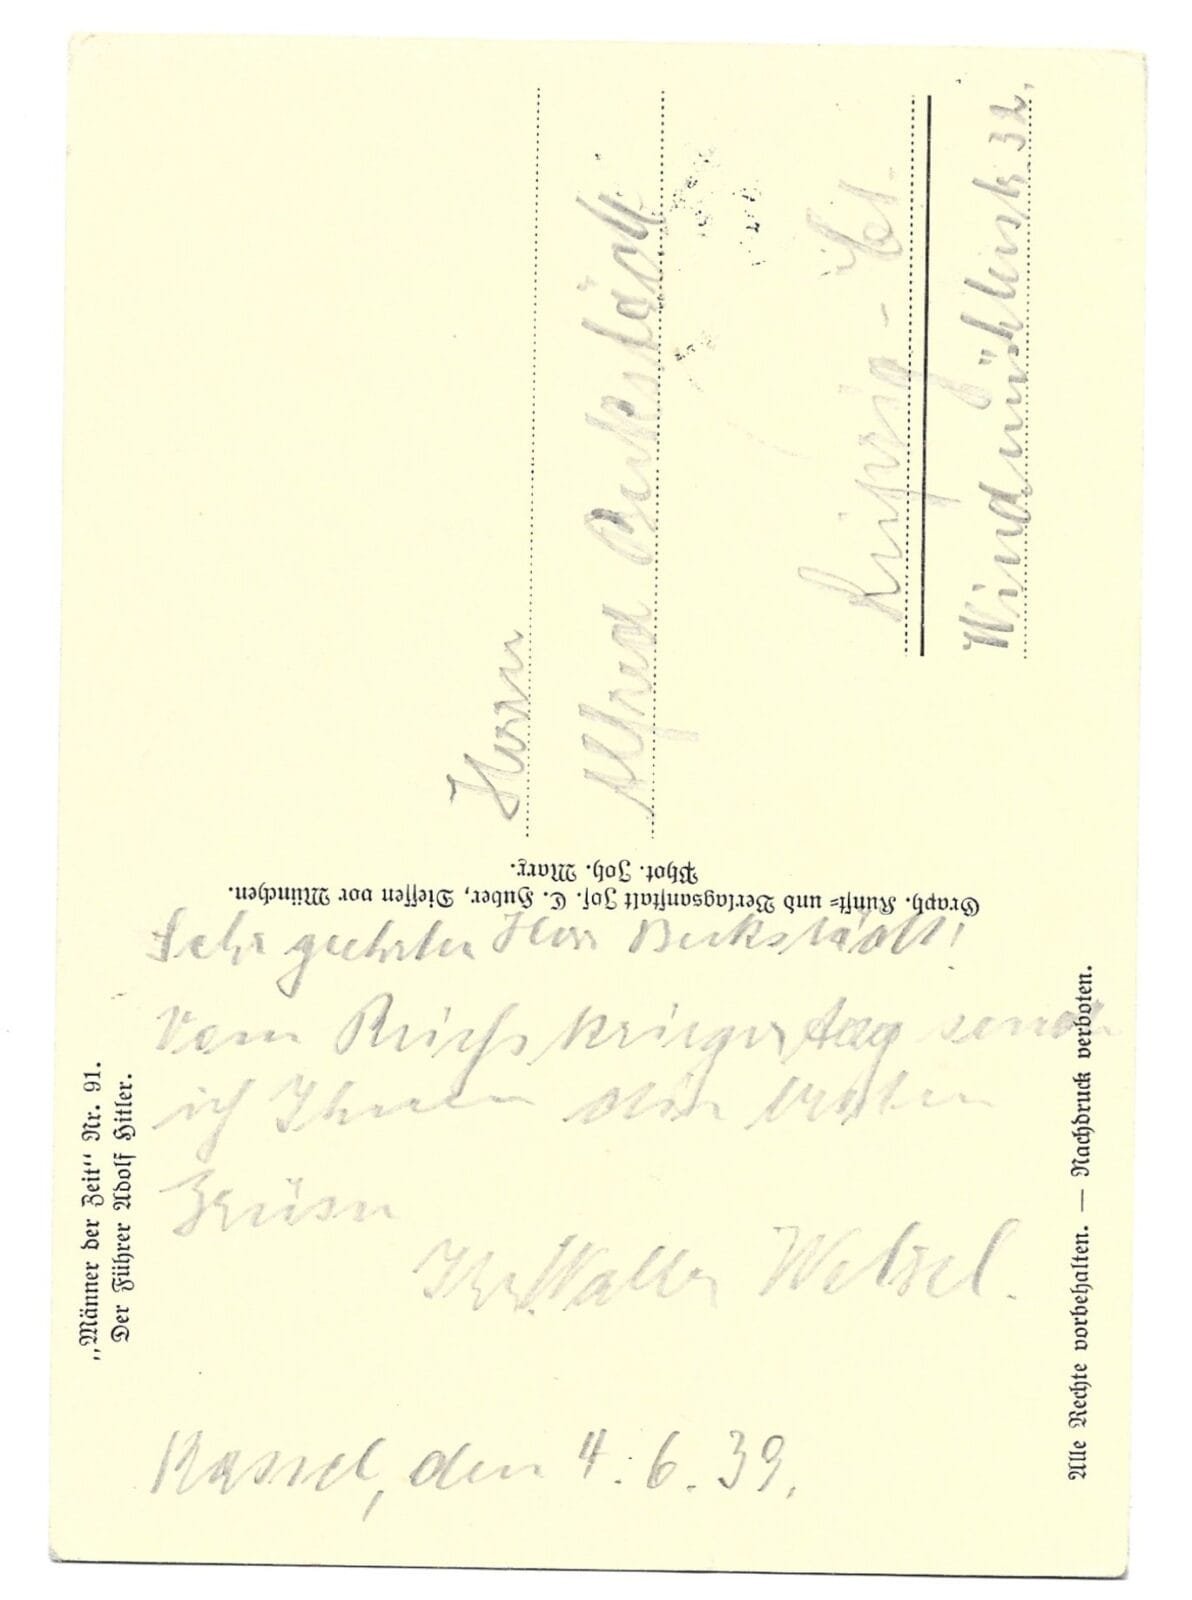 „Männer der Zeit“ Nr. 91.
Der Führer Adolf Hitler.
Graph. Kunst= und Verlagsanstalt Jos. C. Huber, Diessen vor München.
Phot. Joh. Marx.
Alle Rechte vorbehalten. — Nachdruck verboten.
Herrn
Alfred Beckstädt
Leipzig -
Windmühlenstr. 32.
Sehr geehrter Herr Beckstädt!
Vom Reichskriegertag senden
ich Ihnen die besten
Grüsse
Ihr Walter Wetzel.
Kassel, den 4. 6. 39.